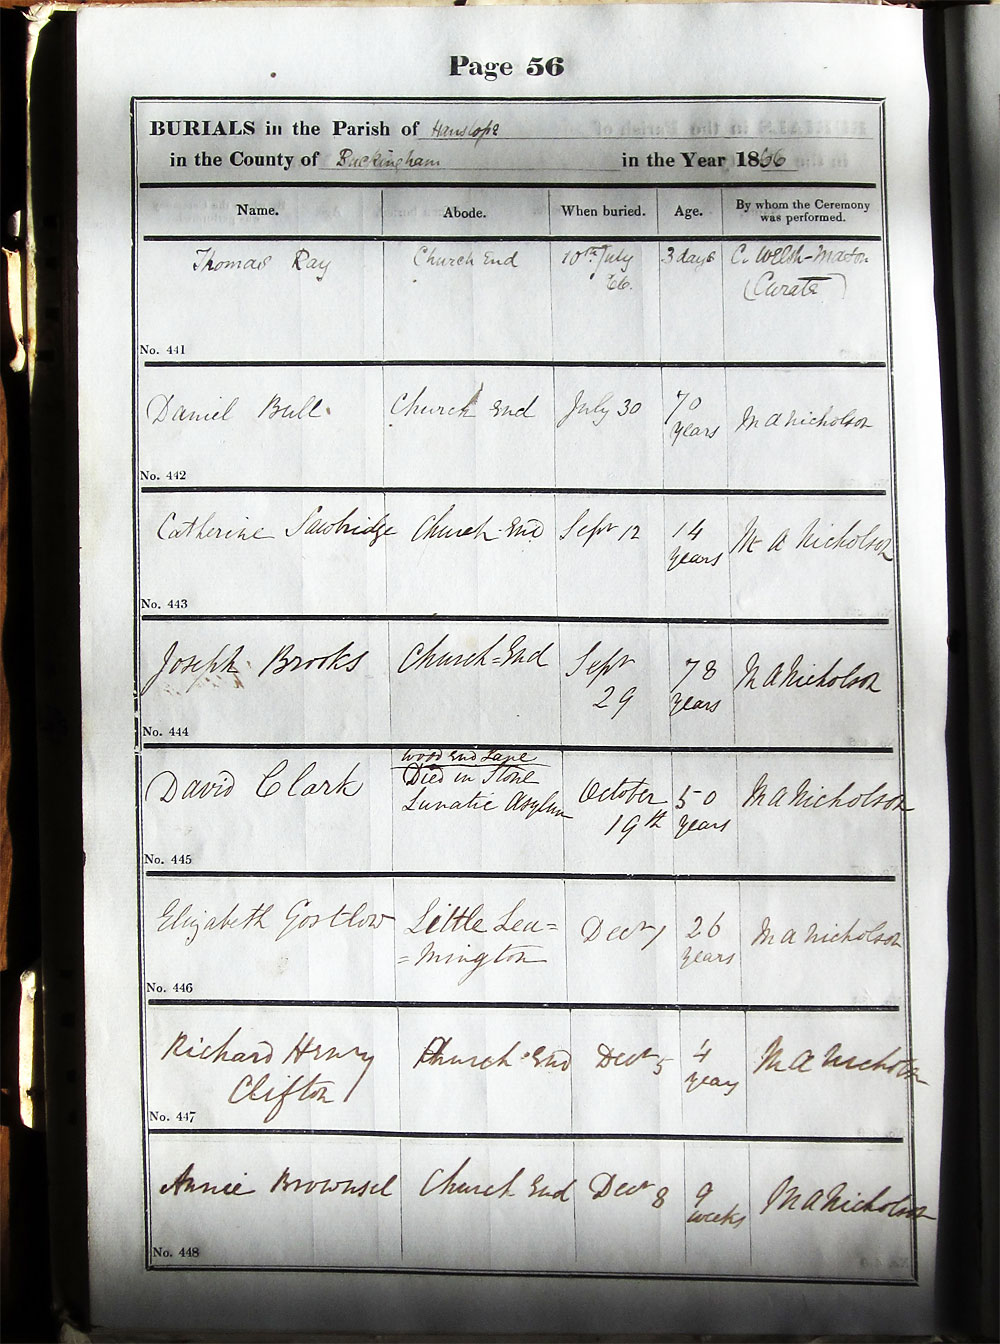 Page 56
BURIALS in the Parish of Hanslope
in the County of Buckingham in the Year 1866
Name. Abode. When buried. Age. By whom the Ceremony was performed.
Thomas Ray Church End 10th July 3 days C. Welsh-Mason
66. (Curate)
No. 441
Daniel Bull. Church End July 30 70 years M A Nicholson
No. 442
Catherine Sawbridge Church End Sept 12 14 years M A Nicholson
No. 443
Joseph Brooks Church=End Sept 29 78 years M A Nicholson
No. 444
Wood End Lane
David Clark Died in Stone October 50 M A Nicholson
Lunatic Asylum 19th years
No. 445
Elizabeth Gostlow Little Lea= Decr 1 26 M A Nicholson
=mington years
No. 446
Richard Henry Church End Decr 5 4 M A Nicholson
Clifton years
No. 447
Annie Brownsel Church End Decr 8 9 weeks M A Nicholson
No. 448